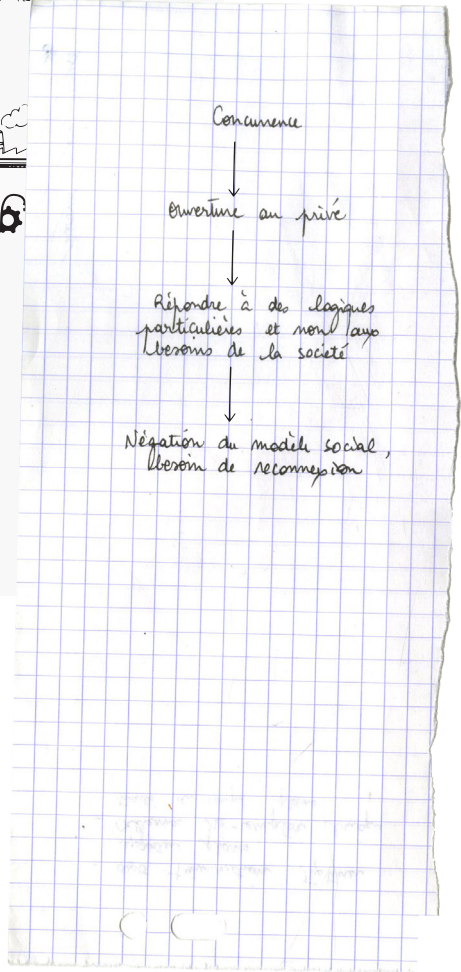 Concurrence
Ouverture au privé
Répondre à des logiques
particulières et non aux
besoins de la société
Négation du modèle social,
besoin de reconnexion